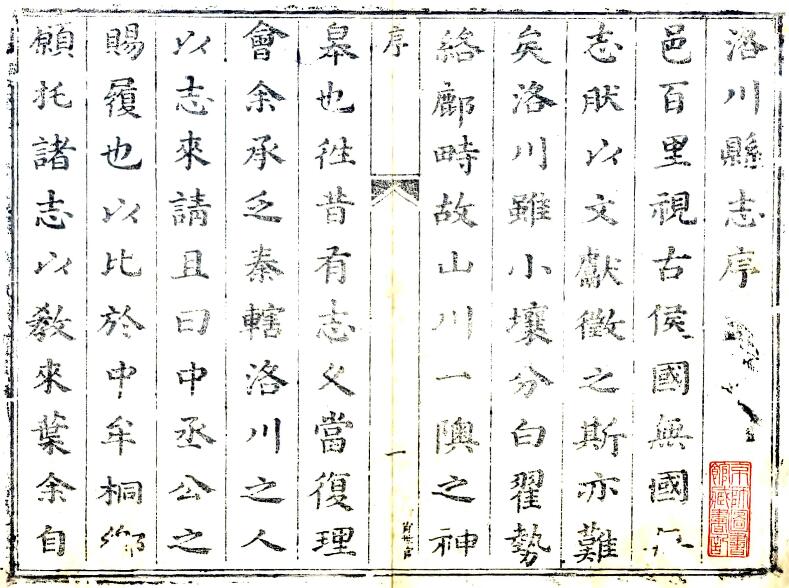 洛川縣志序
邑百里視古侯國無國
志肰以文獻徵之斯亦難
矣洛川雖小壤分白翟勢
絡鄜畤故山川一隩之神
序
一
皐也徃昔有志久當復理
會余承乏秦轄洛川之人
以志來請且曰中丞公之
賜履也以比於中牟桐鄉
願托諸志以敎來葉余自
京師圖書
館藏書記